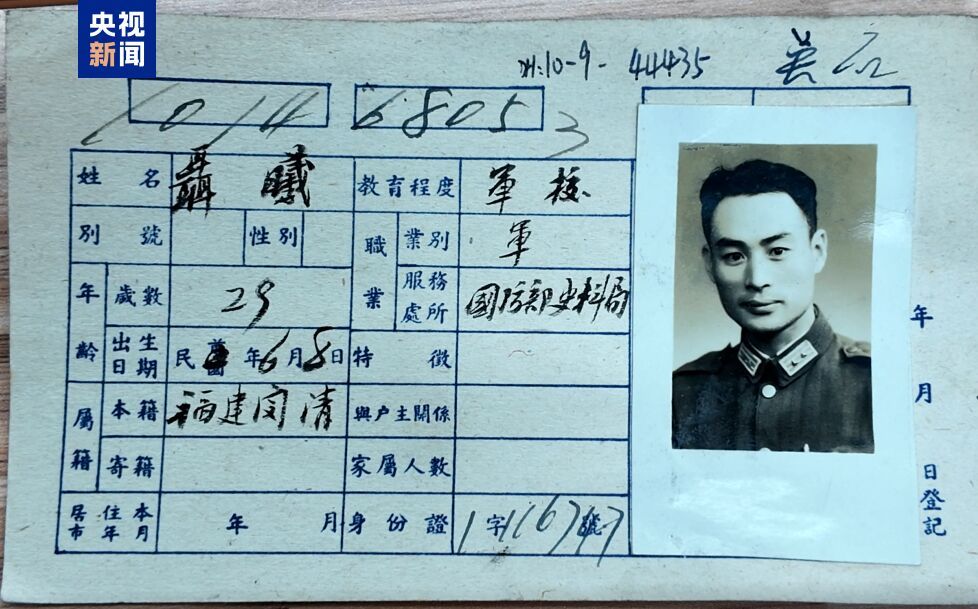 央视
新闻
10-9-44435
1014 68053
姓名 聶曦 教育程度 軍校
別號 性別 職業 業別 軍
年齡 歲數 29 服務處所 國防部史料局
出生日期 民國 年6月8日 特徵
屬籍 本籍 福建闽清 與户主關係
寄籍 家屬人數
居住本市年月 年 月 身份證 1字116747號
年 月 日登記